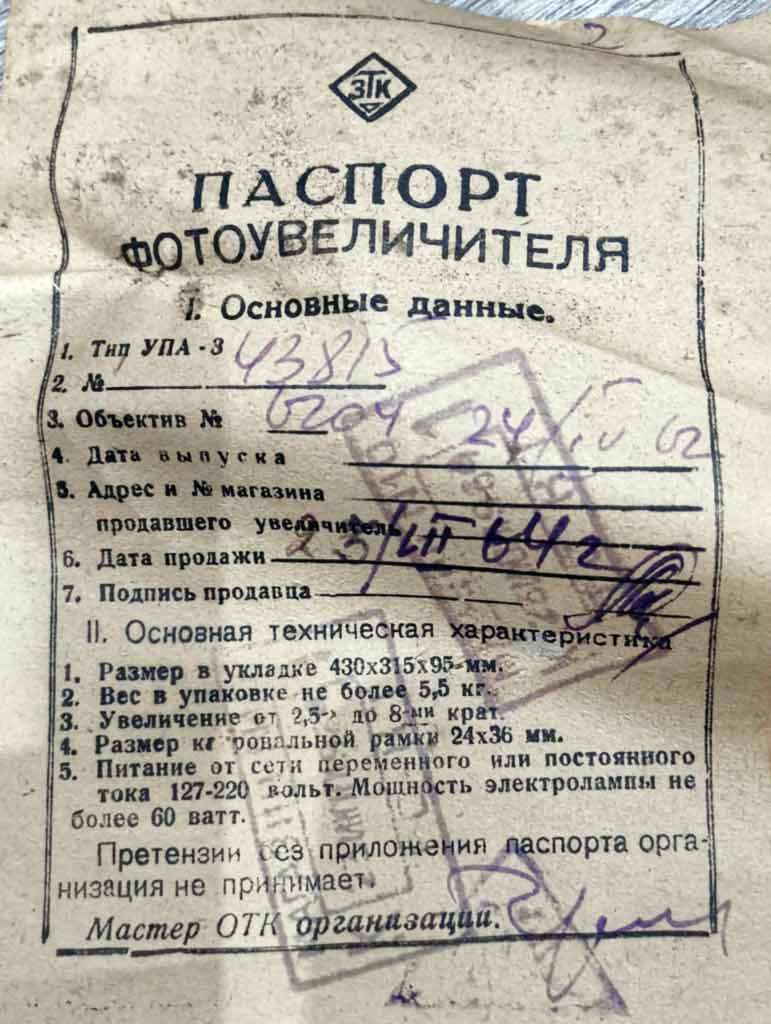 2
ЗТК
ПАСПОРТ
ФОТОУВЕЛИЧИТЕЛЯ
I. Основные данные.
1. Тип УПА-3
2. № 43815
3. Объектив № 6204
4. Дата выпуска 24/IV 62
5. Адрес и № магазина
продавшего увеличитель
6. Дата продажи 23/VIII 64 г
7. Подпись продавца
II. Основная техническая характеристика
1. Размер в укладке 430х315х95 мм.
2. Вес в упаковке не более 5,5 кг.
3. Увеличение от 2,5-х до 8-ми крат.
4. Размер рамки 24х36 мм.
5. Питание от сети переменного или постоянного
тока 127-220 вольт. Мощность электролампы не
более 60 ватт.
Претензии без приложения паспорта орга-
низация не принимает.
Мастер ОТК организации.